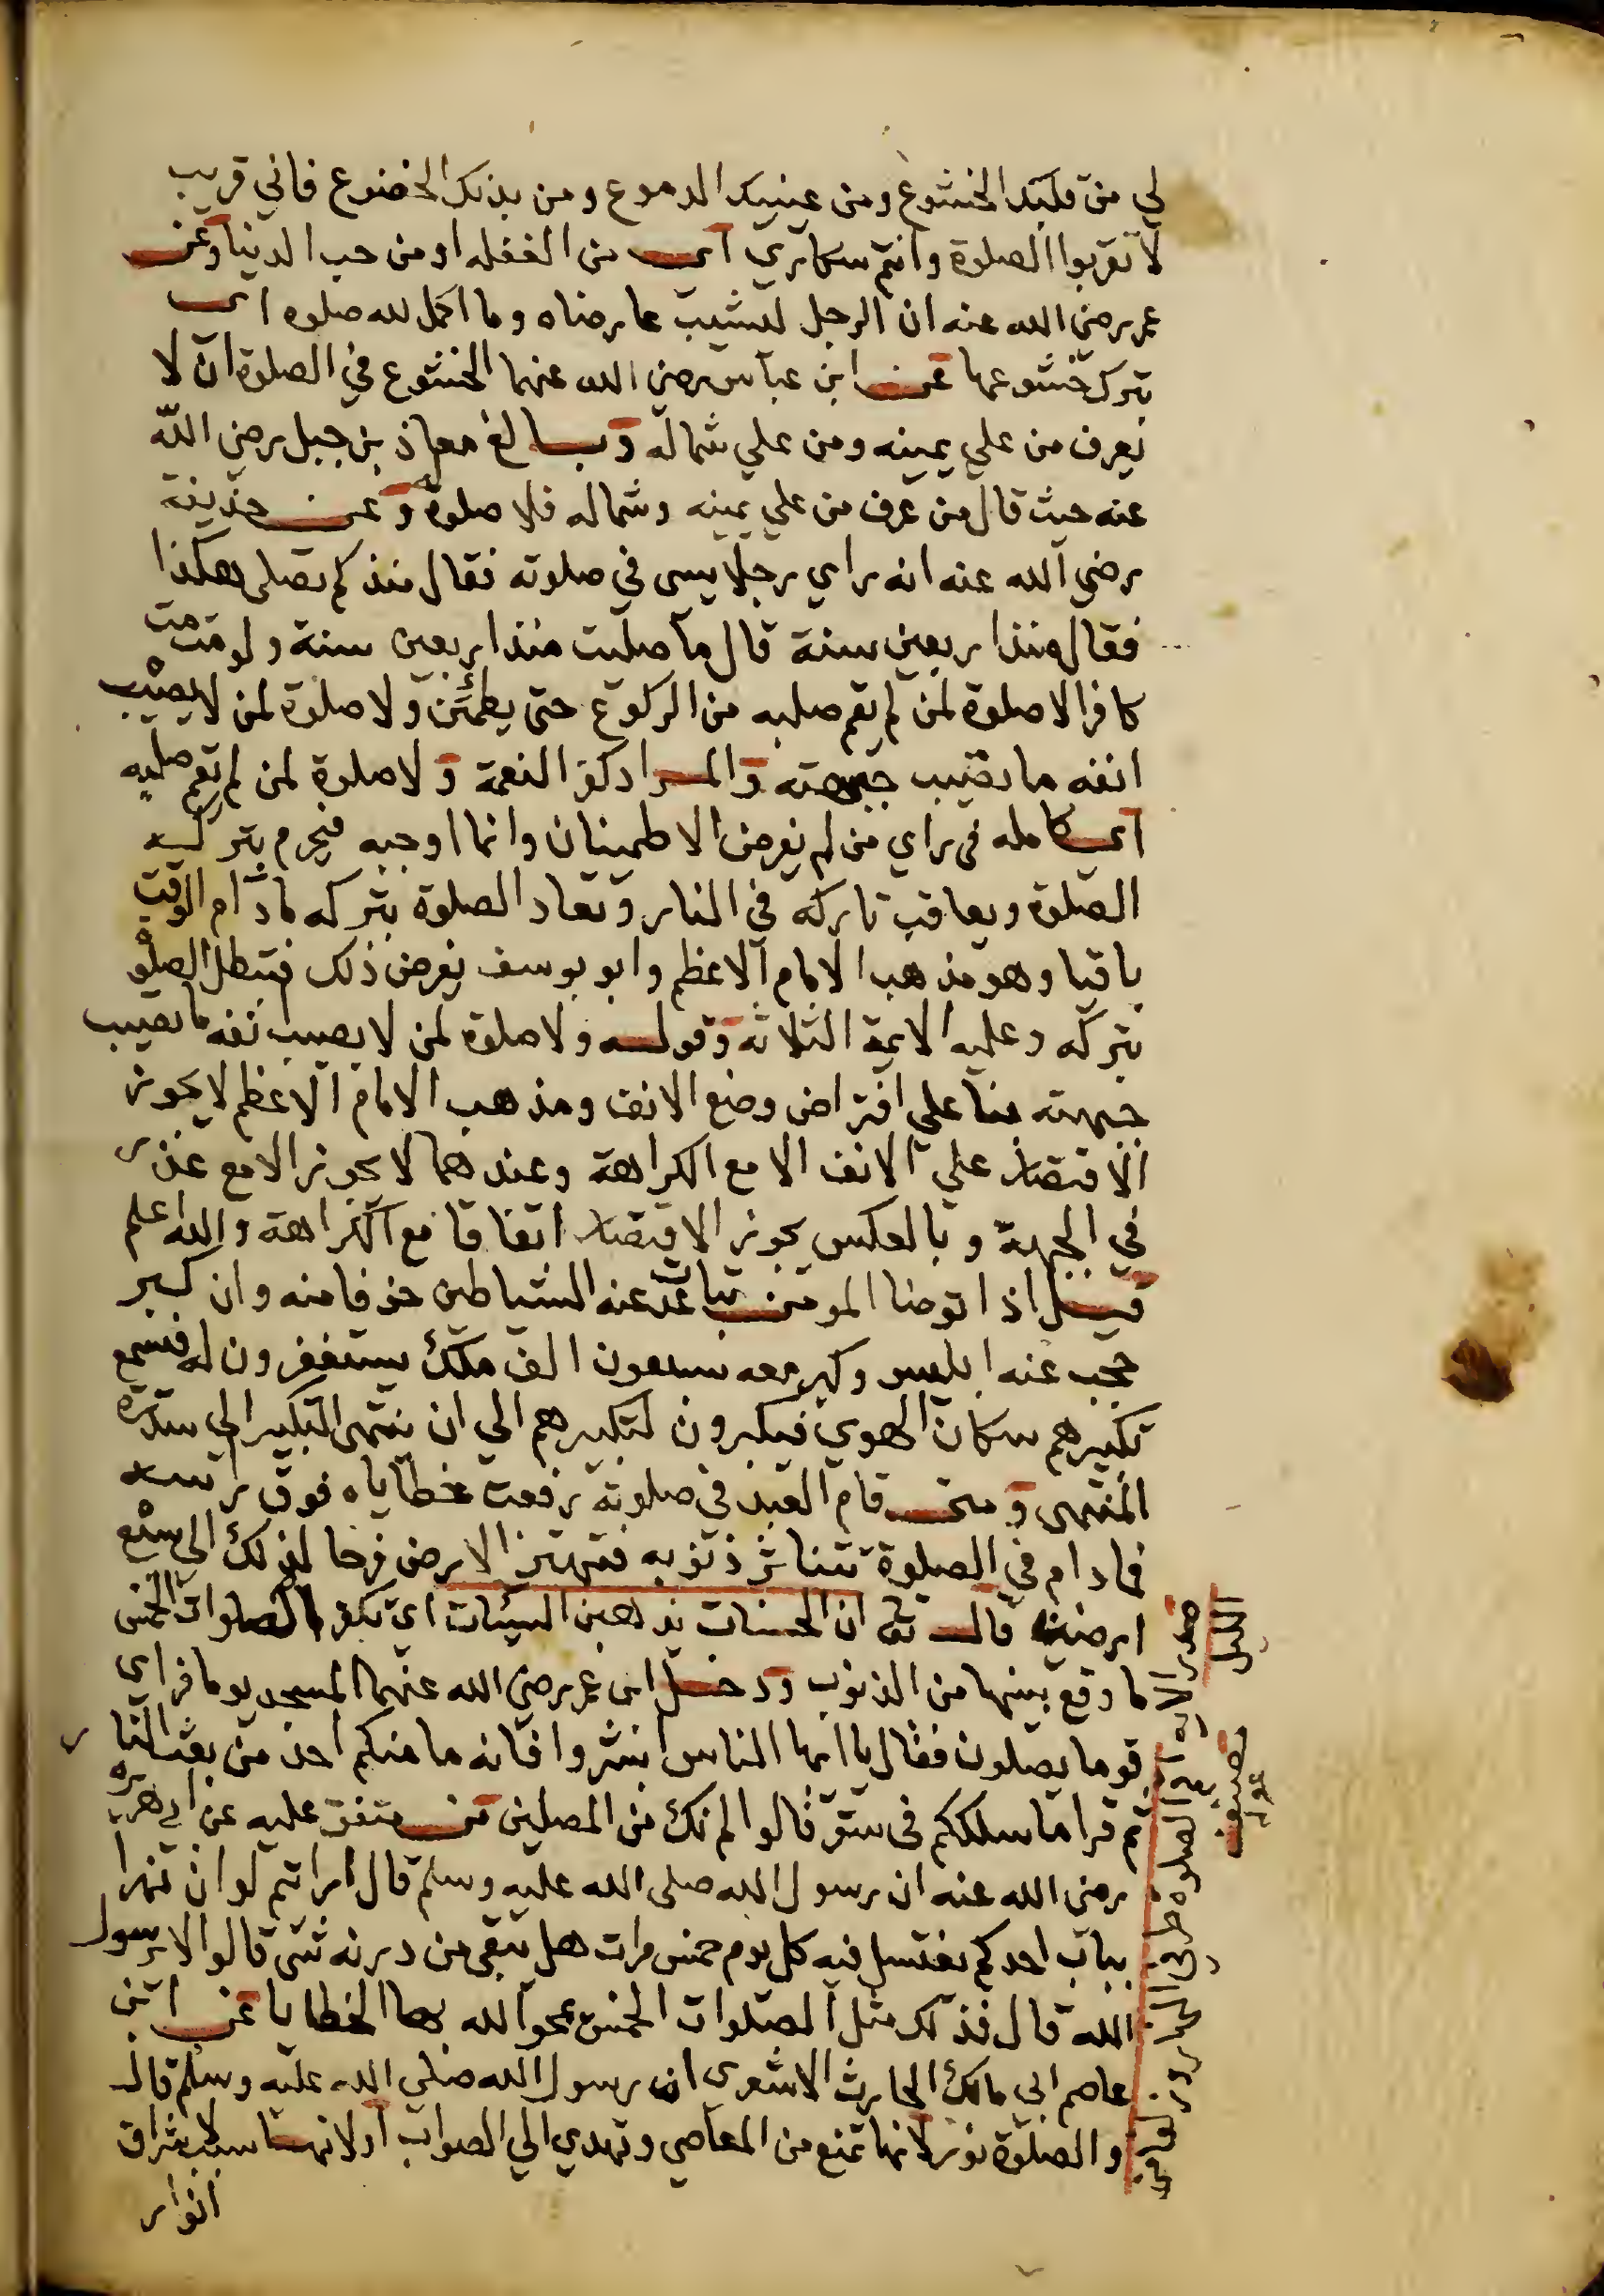 لي من قلبك الخشوع ومن عينيك الدموع ومن بدنك الخضوع فاني قريب
لا تقربوا الصلوة وانتم سكاري اي من الغفله او من حب الدنيا وعن
عمر رضي الله عنه ان الرجل ليشيب عارضاه وما اكمل لله صلوه اي
بترك خشوعها عن ابن عباس رضي الله عنهما الخشوع في الصلوة ان لا
يعرف من علي يمينه ومن علي شماله وبالغ معاذ بن جبل رضي الله
عنه حيث قال من عرف من علي يمينه وشماله فلا صلوة له وعن حذيفة
رضي الله عنه انه راي رجلا يسي في صلوته فقال منذ كم تصلي هكذا
فقال منذ اربعين سنة قال ما صليت منذ اربعين سنة ولو مت مت
كافرا لا صلوة لمن لم يقم صلبه من الركوع حتى يطمئن ولا صلوة لمن لا يصيب
انفه ما تصيب جبهته والمراد كفر النعمة ولا صلوة لمن لم يقم صلبه
اي كامله في راي من لم يفرض الاطمينان وانما اوجبه فيحرم بتركه
الصلوة ويعاقب تاركه في النار وتعاد الصلوة بتركه مادام الوقت
باقيا وهو مذهب الامام الاعظم وابو يوسف يفرض ذلك فتبطل الصلوة
بتركه وعليه الايمة الثلاثه وقوله ولا صلوة لمن لا يصيب انفه ما تصيب
جبهته بنا علي افتراض وضع الانف ومذهب الامام الاعظم لا يجوز
الاقتصار علي الانف الا مع الكراهة وعندهما لا يجوز الا مع عذر
في الجبهة وبالعكس يجوز الاقتصار اتفاقا مع الكراهة والله اعلم
قيل اذا توضا المومن تباعد عنه الشياطين خوفا منه وان كبر
حجب عنه ابليس وكبر معه سبعون الف ملك يستغفرون له فيسمع
تكبيرهم سكان الهوي فيكبرون لتكبيرهم الي ان ينتهي التكبير الي سدرة
المنتهى ومتى قام العبد في صلوته رفعت خطاياه فوق راسه
فمادام في الصلوة تتناثر ذنوبه فتهتز الارض فرحا لذلك الي سبع
ارضين قال تع ان الحسنات يذهبن السيئات اي تكفر الصلوات الخمس
ما وقع بينها من الذنوب ودخل ابن عمر رضي الله عنهما المسجد يوما فراي
قوما يصلون فقال يا ايها الناس ابشروا فانه ما منكم احد من بعث النار
ثم قرا ما سلككم في سقر قالوا لم نك من المصلين متفق عليه عن ابي هريرة
رضي الله عنه ان رسول الله صلى الله عليه وسلم قال ارايتم لو ان نهرا
بباب احدكم يغتسل فيه كل يوم خمس مرات هل يبقي من درنه شي قالوا لا يرسول
الله قال فذلك مثل الصلوات الخمس يمحو الله بها الخطايا عن ابن
عاصم ابي مالك الحارث الاشعري ان رسول الله صلى الله عليه وسلم قال
والصلوة نور لانها تمنع من المعاصي وتهدي الي الصواب او لانها سبب لاشراق
انوار
الليل